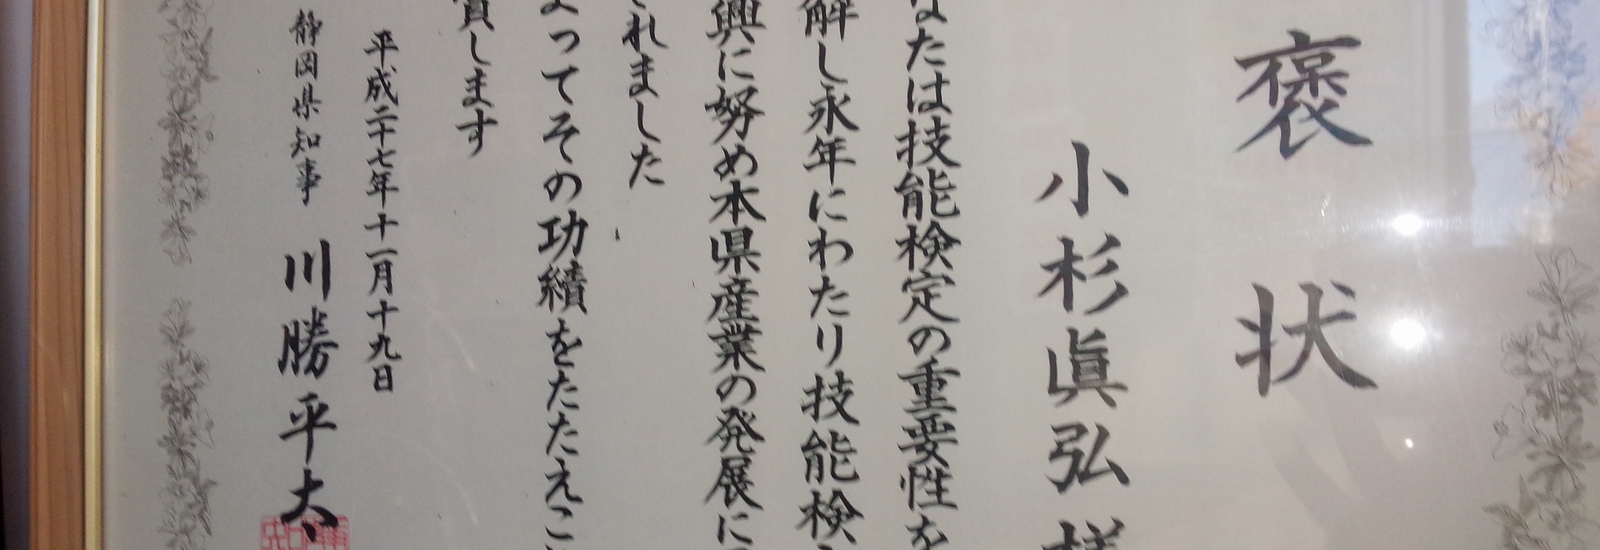 褒状
小杉眞弘様
なたは技能検定の重要性を
解し永年にわたり技能検
興に努め本県産業の発展に
されました
よってその功績をたたえこ
賞します
平成二十七年十一月十九日
静岡県知事 川勝平太